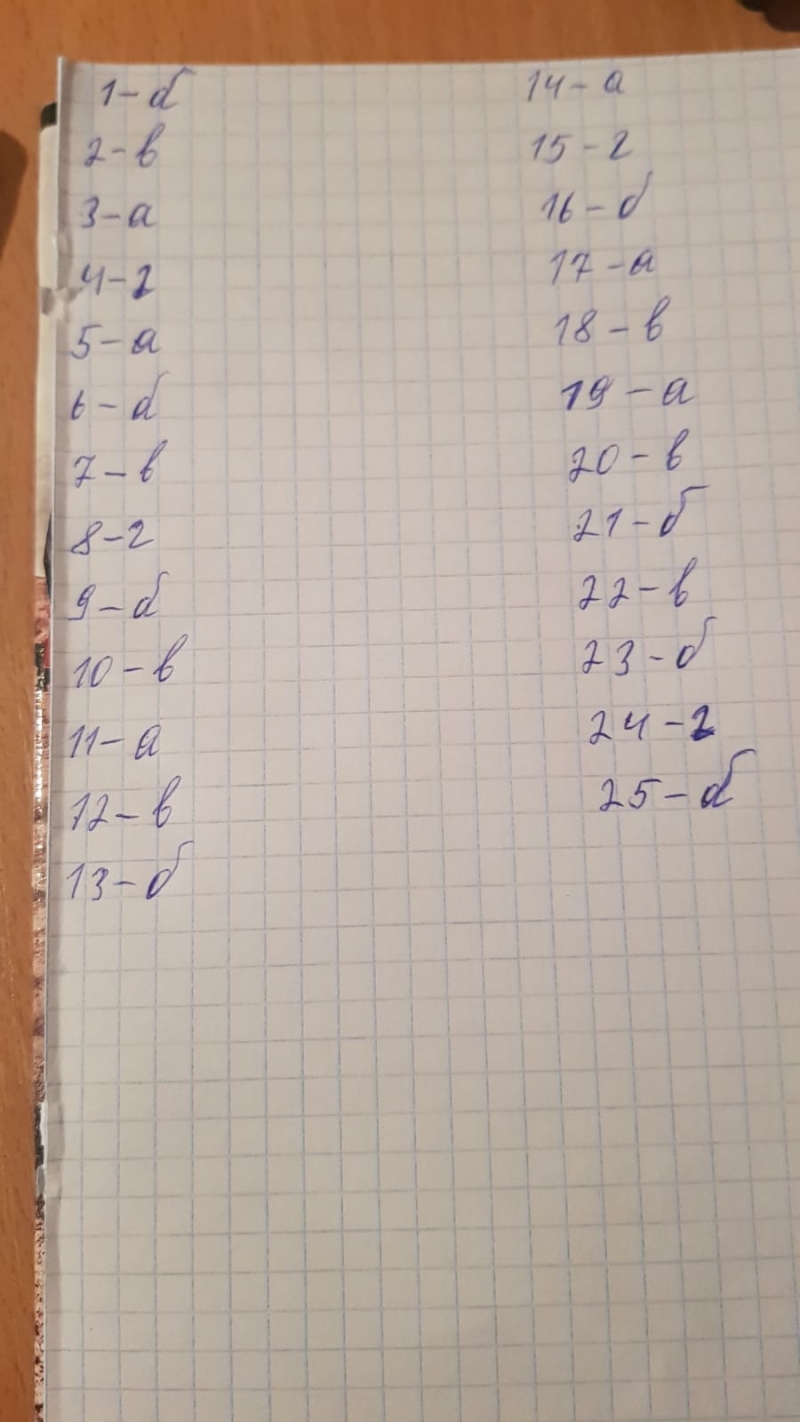 1-б
2-в
3-а
4-г
5-а
6-б
7-в
8-г
9-б
10-в
11-а
12-в
13-б
14-а
15-г
16-б
17-а
18-в
19-а
20-в
21-б
22-в
23-б
24-г
25-б